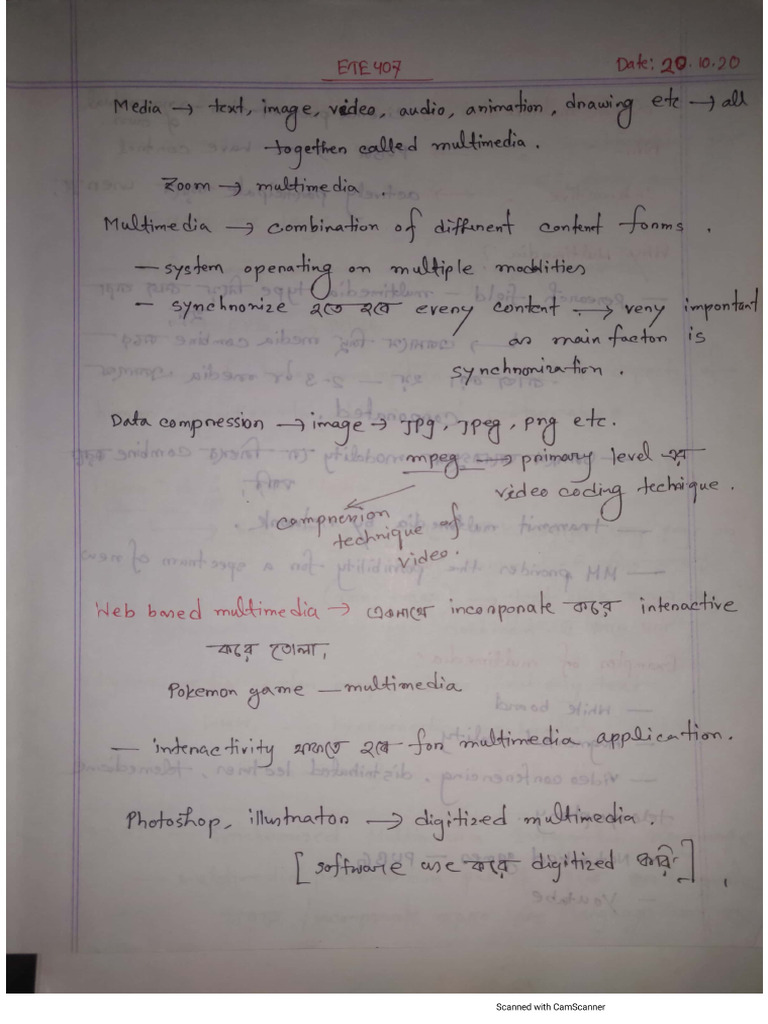 ETE 407
Date: 20.10.20
Media → text, image, video, audio, animation, drawing etc → all
together called multimedia.
Zoom → multimedia.
Multimedia → combination of different content forms.
— system operating on multiple modalities
— synchronize হতে হবে every content → very important
as main factor is
synchronization.
Data compression → image → Jpg, Jpeg, png etc.
mpeg → primary level এর
video coding technique.
compression
technique of
video.
Web based multimedia → একসাথে incorporate করে interactive
করে তোলা,
Pokemon game — multimedia
— interactivity থাকতে হবে for multimedia application.
Photoshop, illustrator → digitized multimedia.
[software use করে digitized করি]
Scanned with CamScanner